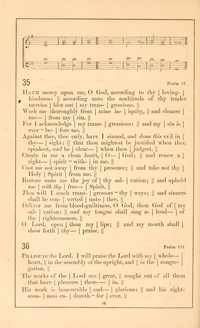 35
Psalm 51.
HAVE mercy upon me, O God, according to thy | loving- |
kindness: || according unto the multitude of thy tender
mercies | blot out | my trans- | gressions. ||
Wash me thoroughly from | mine in- | iquity, || and cleanse
me— | from my | sin. ||
For I acknowledge | my trans- | gressions: || and my | sin is
ever — be | fore me. ||
Against thee, thee only, have I sinned, and done this evil in |
thy— | sight: || that thou mightest be justified when thou
speakest, and be | clear— | when thou | judgest. ||
Create in me a clean heart, | O— | God; || and renew a |
right— | spirit — with- | in me. ||
Cast me not away | from thy | presence; || and take not thy |
Holy | Spirit | from me. ||
Restore unto me the joy of | thy sal- | vation; || and uphold
me | with thy | free— | Spirit. ||
Then will I teach trans- | gressors — thy | ways; || and sinners
shall be con- | verted | unto | thee. ||
Deliver me from bloodguiltiness, O God, thou God of | my
sal- | vation: || and my tongue shall sing a- | loud— | of
thy | righteousness. ||
O Lord, open | thou my | lips; || and my mouth shall |
shew forth | thy— | praise. ||
36
Psalm 111.
PRAISE ye the Lord. I will praise the Lord with my | whole— |
heart, || in the assembly of the upright, and | in the | congre-
gation. ||
The works of the | Lord are | great, || sought out of all them
that have | pleasure | there— | in. ||
His work is | honourable | and— | glorious: || and his right-
eous- | ness en- | dureth — for | ever. ||